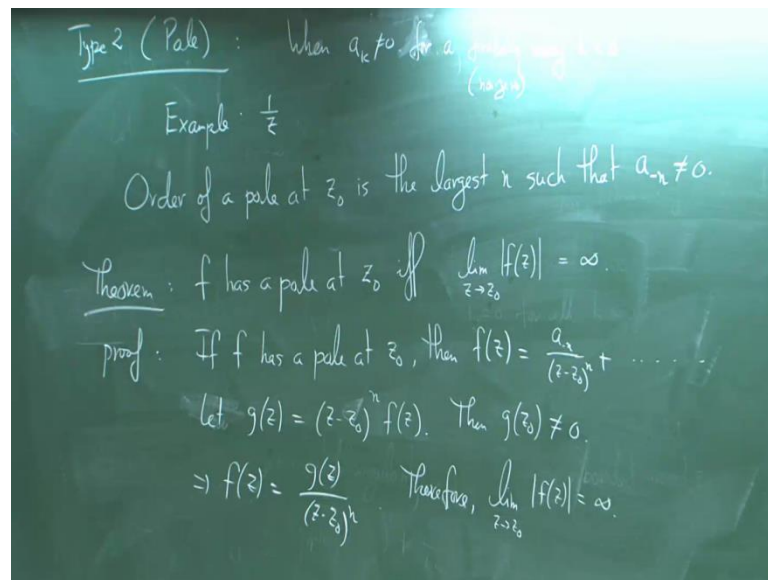 Type 2 (Pole) : When aₖ ≠ 0 for a finitely many k < 0
(nonzero)
Example : 1/z
Order of a pole at z₀ is the largest n such that a₋ₙ ≠ 0.
Theorem : f has a pole at z₀ iff lim_{z→z₀} |f(z)| = ∞.
proof : If f has a pole at z₀, then f(z) = a₋ₙ/(z-z₀)ⁿ + .......
Let g(z) = (z-z₀)ⁿ f(z). Then g(z₀) ≠ 0.
⇒ f(z) = g(z)/(z-z₀)ⁿ. Therefore, lim_{z→z₀} |f(z)| = ∞.